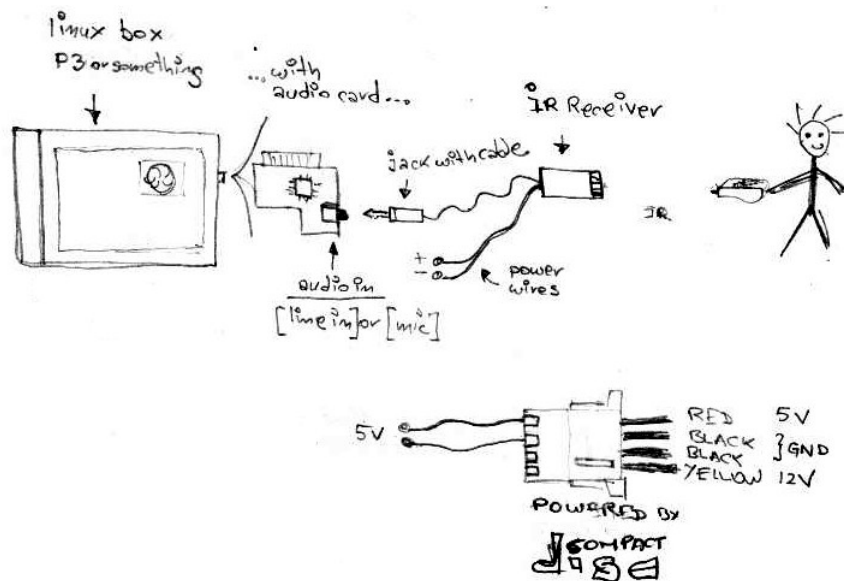 linux box
P3 or something
...with
audio card...
IR Receiver
jack with cable
IR
+
-
power
wires
audio in
[line in] or [mic]
5V
RED 5V
BLACK
BLACK
} GND
YELLOW 12V
POWERED BY
COMPACT